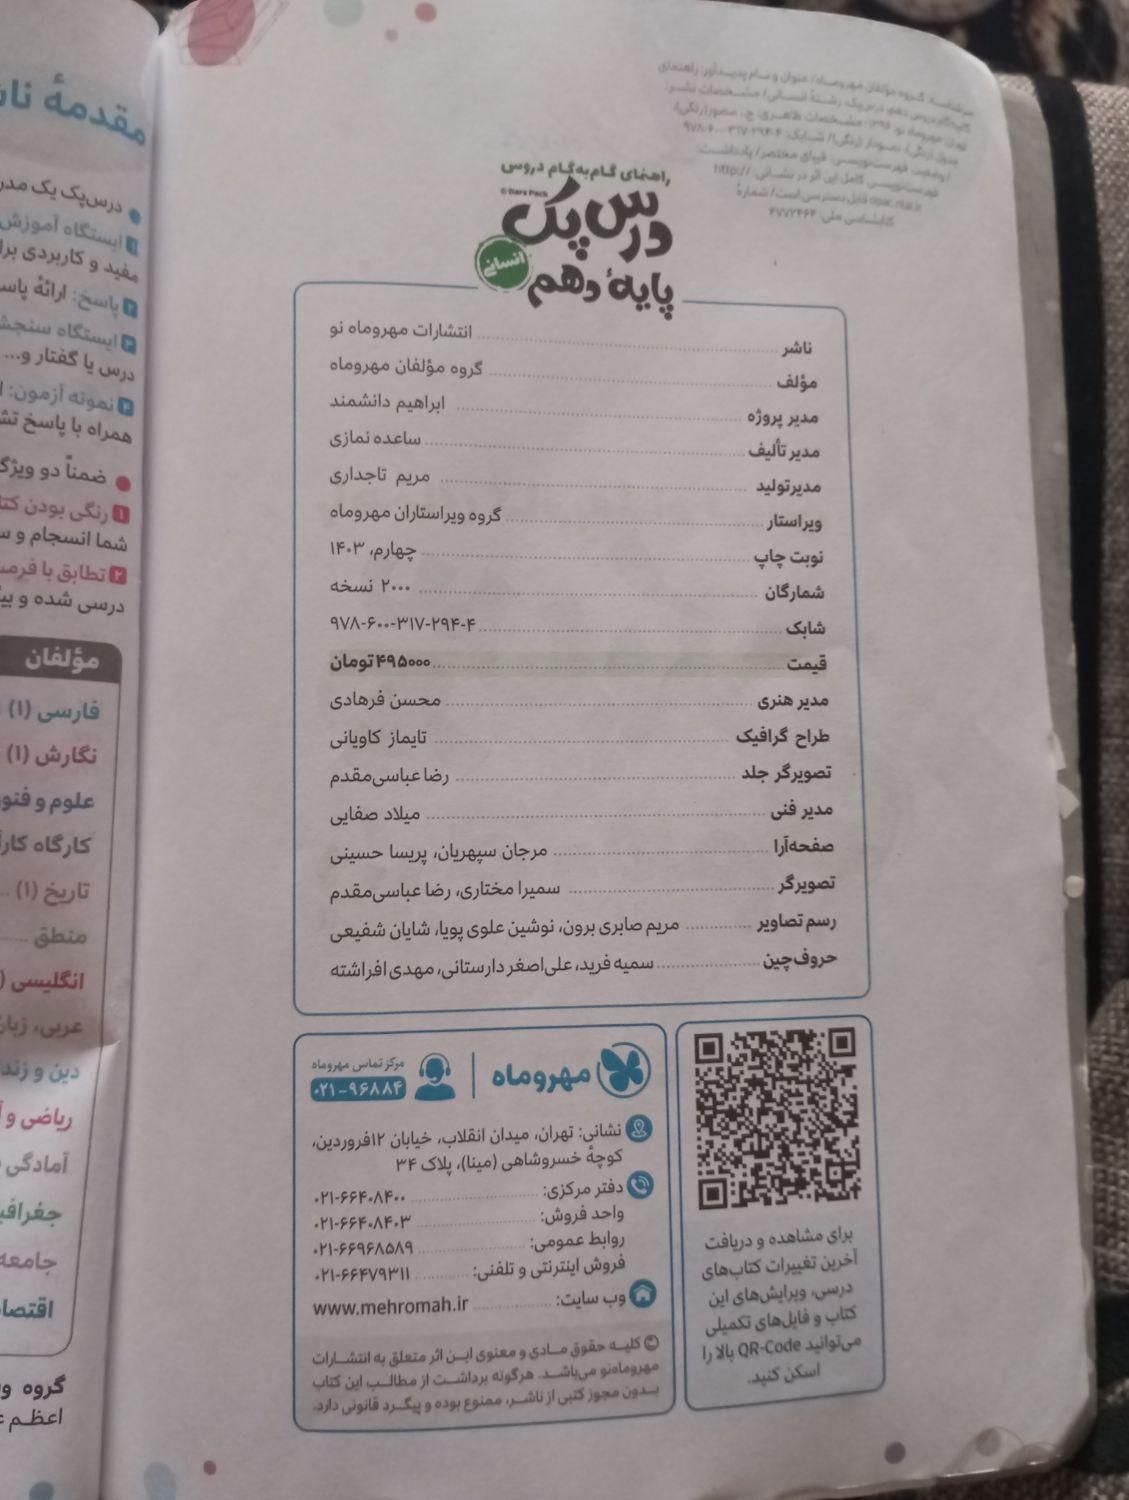 سرشناسه: گروه مؤلفان مهروماه/ عنوان و نام پدیدآور: راهنمای
گام‌به‌گام دروس دهم، درس‌پک، رشتهٔ انسانی/ مشخصات نشر:
تهران: مهروماه نو، / مشخصات ظاهری: ج.: مصور(رنگی)،
جدول (رنگی)، نمودار (رنگی)/ شابک: ۴-۲۹۴-۳۱۷-۶۰۰-۹۷۸
/ وضعیت فهرست‌نویسی: فیپای مختصر/ یادداشت:
فهرست‌نویسی کامل این اثر در نشانی: http://
opac.nlai.ir قابل دسترسی است/ شمارهٔ
کتابشناسی ملی: ۴۷۷۲۴۶۴
راهنمای گام‌به‌گام دروس
© Dars Pack
درس‌پک
پایهٔ دهم
انسانی
ناشر ... انتشارات مهروماه نو
مؤلف ... گروه مؤلفان مهروماه
مدیر پروژه ... ابراهیم دانشمند
مدیر تألیف ... ساعده نمازی
مدیر تولید ... مریم تاجداری
ویراستار ... گروه ویراستاران مهروماه
نوبت چاپ ... چهارم، ۱۴۰۳
شمارگان ... ۲۰۰۰ نسخه
شابک ... ۹۷۸-۶۰۰-۳۱۷-۲۹۴-۴
قیمت ... ۴۹۵۰۰۰ تومان
مدیر هنری ... محسن فرهادی
طراح گرافیک ... تایماز کاویانی
تصویرگر جلد ... رضا عباسی‌مقدم
مدیر فنی ... میلاد صفایی
صفحه‌آرا ... مرجان سپهریان، پریسا حسینی
تصویرگر ... سمیرا مختاری، رضا عباسی‌مقدم
رسم تصاویر ... مریم صابری برون، نوشین علوی پویا، شایان شفیعی
حروف‌چین ... سمیه فرید، علی‌اصغر دارستانی، مهدی افراشته
برای مشاهده و دریافت
آخرین تغییرات کتاب‌های
درسی، ویرایش‌های این
کتاب و فایل‌های تکمیلی
می‌توانید QR-Code بالا را
اسکن کنید.
مهروماه
مرکز تماس مهروماه
۰۲۱-۹۶۸۸۴
نشانی: تهران، میدان انقلاب، خیابان ۱۲فروردین،
کوچهٔ خسروشاهی (مینا)، پلاک ۳۴
دفتر مرکزی: ... ۰۲۱-۶۶۴۰۸۴۰۰
واحد فروش: ... ۰۲۱-۶۶۴۰۸۴۰۳
روابط عمومی: ... ۰۲۱-۶۶۹۶۸۵۸۹
فروش اینترنتی و تلفنی: ... ۰۲۱-۶۶۴۷۹۳۱۱
وب سایت: ... www.mehromah.ir
© کلیه حقوق مادی و معنوی این اثر متعلق به انتشارات
مهروماه‌نو می‌باشد. هرگونه برداشت از مطالب این کتاب
بدون مجوز کتبی از ناشر، ممنوع بوده و پیگرد قانونی دارد.
مقدمهٔ
درس‌پک یک
۱ ایستگاه آموزش
مفید و کاربردی
۲ پاسخ: ارائهٔ
۳ ایستگاه
درس یا گفتار و...
۴ نمونه آزمون:
همراه با پاسخ
ضمناً دو
۱ رنگی بودن
شما انسجام و
۲ تطابق با
درسی شده و
مؤلفان
فارسی (۱)
نگارش (۱)
علوم و
کارگاه
تاریخ (۱)
منطق
انگلیسی
عربی،
دین و
ریاضی و
آمادگی
جامعه
گروه
اعظم